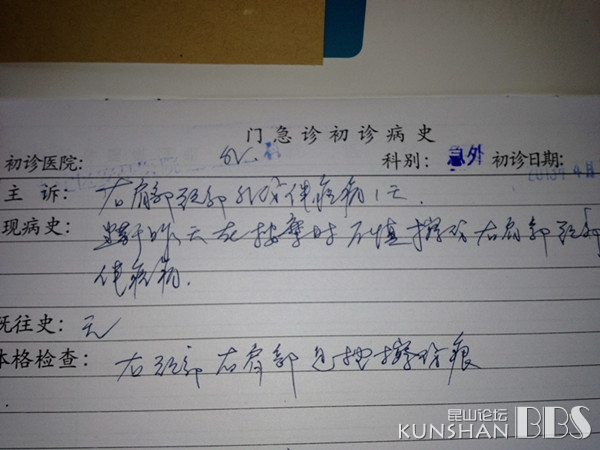 门急诊初诊病史
初诊医院: 科别: 急外 初诊日期: 2013年4月
主 诉: 右肩部颈部 伴疼痛1天.
现病史: 昨天在按摩时不慎擦伤右肩部颈部
伴疼痛.
既往史: 无
体格检查: 右颈部右肩部 擦伤痕
昆山论坛
KUNSHAN BBS